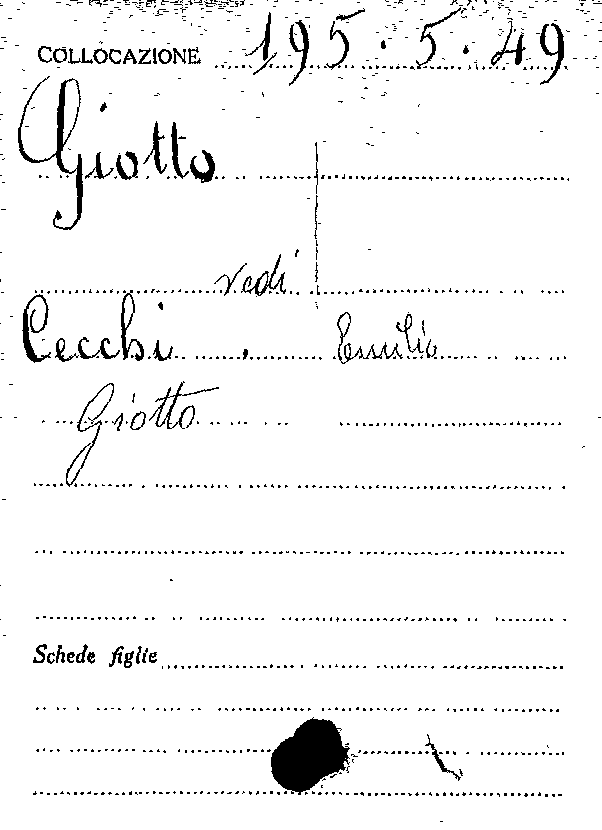 COLLOCAZIONE 195.5.49
Giotto
vedi
Cecchi Emilio
Giotto
Schede figlie